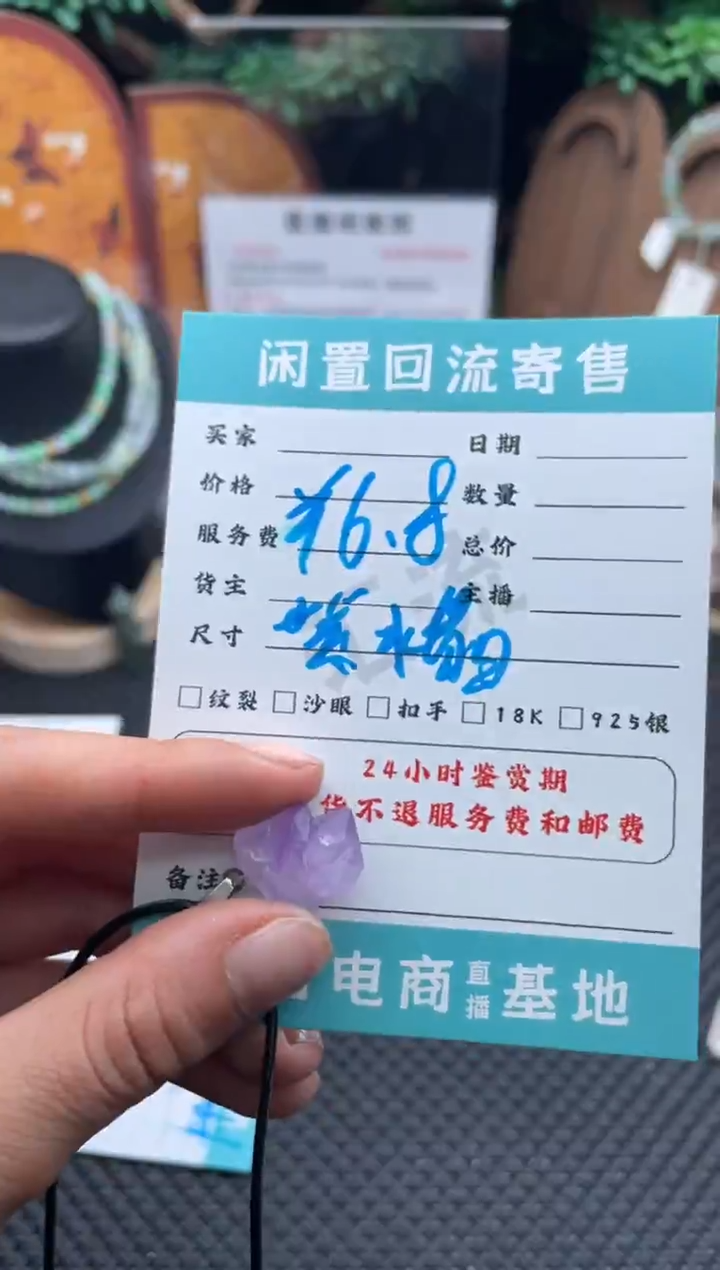 闲置回流寄售
买家 日期
价格 ¥6.8 数量
服务费 总价
货主 主播
尺寸
□纹裂 □沙眼 □扣手 □18K □925银
24小时鉴赏期
货不退服务费和邮费
备注
电商直播基地